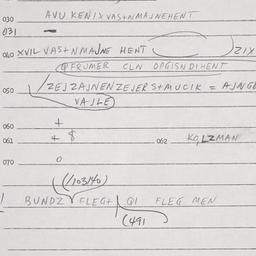 030 AVU KENIX VAS+NMAJNEHENT
031 —
040 XVIL VAS+NMAJNE HENT ZIX
QFRUMER CLN OPGISNDIHENT
050 /ZEJZAJNENZEJERS+MUCIK = AJNGE
VAJLE)
060 +
061 + $ 062 KO,LZMAN
070 0
(/103/40)
BUNDZ FLEG+ QI FLEG MEN
(491